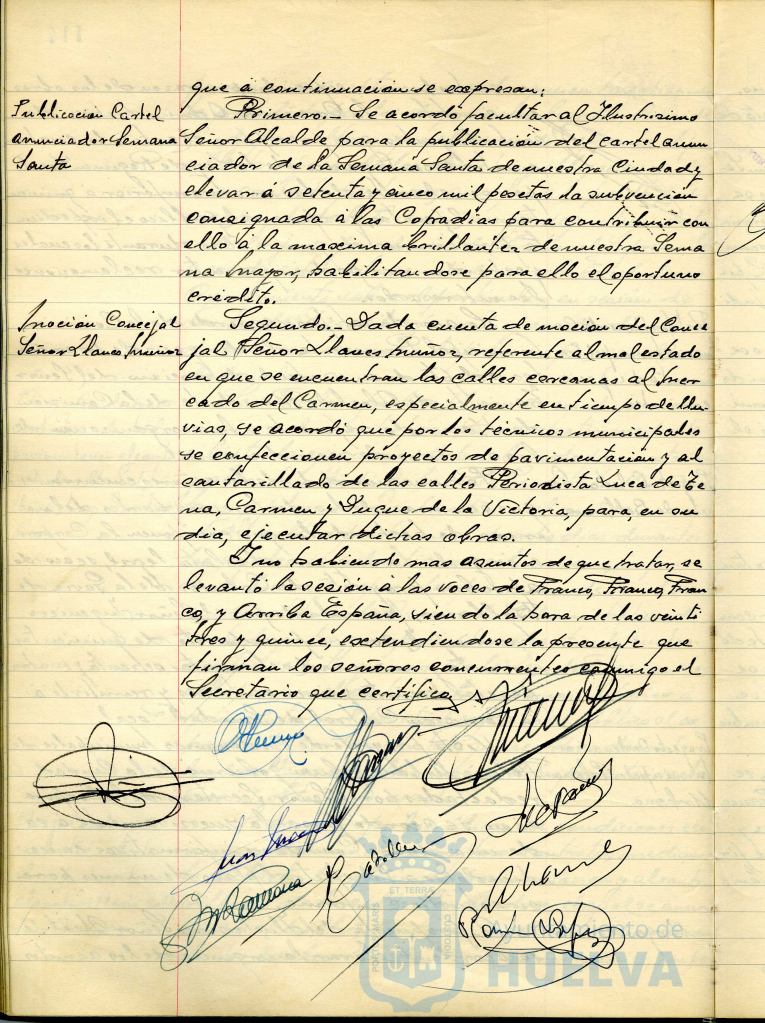 que à continuación se expresan:
Publicación Cartel
anunciador Semana
Santa
Primero.- Se acordó facultar al Ilustrisimo
Señor Alcalde para la publicación del cartel anun
ciador de la Semana Santa de nuestra Ciudad y
elevar á setenta y cinco mil pesetas la subvención
consignada à las Cofradias para contribuir con
ello à la maxima brillantez de nuestra Sema
na Mayor, habilitandose para ello el oportuno
crédito.
Moción Concejal
Señor Llanes Muñoz
Segundo.- Dada cuenta de moción del Conce
jal Señor Llanes Muñoz, referente al mal estado
en que se encuentran las calles cercanas al Mer
cado del Carmen, especialmente en tiempo de llu-
vias, se acordó que por los técnicos municipales
se confeccionen proyectos de pavimentación y al
cantarillado de las calles Periodista Luca de Te
na, Carmen y Duque de la Victoria, para, en su
dia, ejecutar dichas obras.
Y no habiendo mas asuntos de que tratar, se
levantó la sesión à las voces de Franco, Franco, Fran
co, y Arriba España, siendo la hora de las veinti
tres y quince, extendiendose la presente que
firman los señores concurrentes conmigo el
Secretario que certifico.
PORTUS MARIS
ET TERRAE
CUSTODIA
Ayuntamiento de
HUELVA